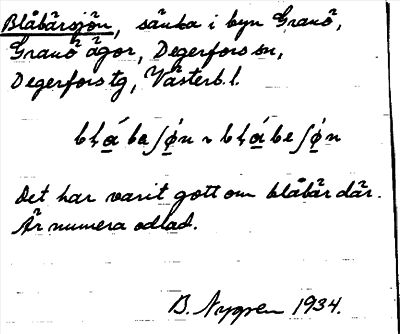 Blåbärsjön, sänka i byn Granö,
Granö ägor, Degerfors sn,
Degerfors tg, Västerb. l.
Det har varit gott om blåbär där.
Är numera odlad.
B. Nygren 1934.